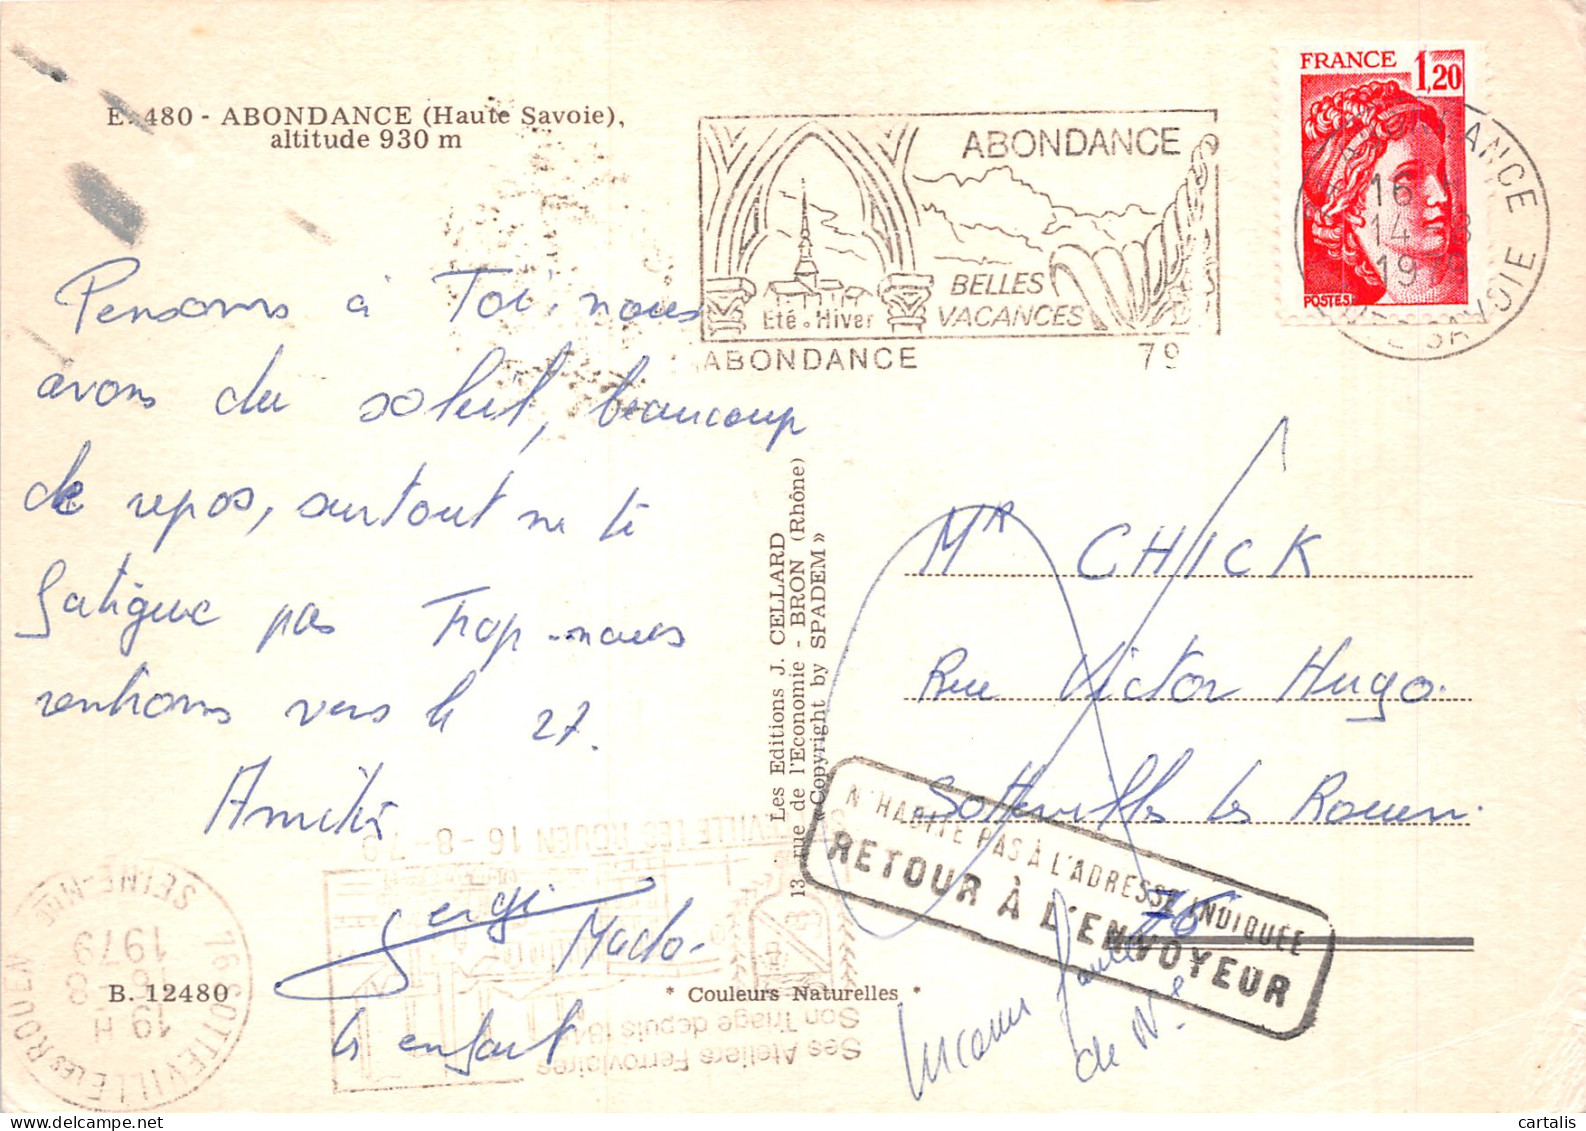 E. 480 - ABONDANCE (Haute Savoie),
altitude 930 m
ABONDANCE
BELLES
VACANCES
Eté . Hiver
ABONDANCE 79
FRANCE 1,20
POSTES
16
14 8
19
HAUTE SAVOIE
Pensons à Toi. nous
avons du soleil, beaucoup
de repos, surtout ne te
fatigue pas Trop. nous
rentrons vers le 27.
Amitiés
Sergi Mado
le enfant
Les Editions J. CELLARD
13, rue de l'Economie - BRON (Rhône)
«Copyright by SPADEM»
Mr CHICK
Rue Victor Hugo.
Sotteville les Rouen.
76
N'HABITE PAS À L'ADRESSE INDIQUÉE
RETOUR À L'ENVOYEUR
Inconnu faute
de N°
B. 12480
* Couleurs Naturelles *
76 SOTTEVILLE LES ROUEN
SEINE-Mme
19 H
16 8
1979
SOTTEVILLE LES ROUEN 16-8-79
Ses Ateliers Ferroviaires
Son Triage depuis
cartalis